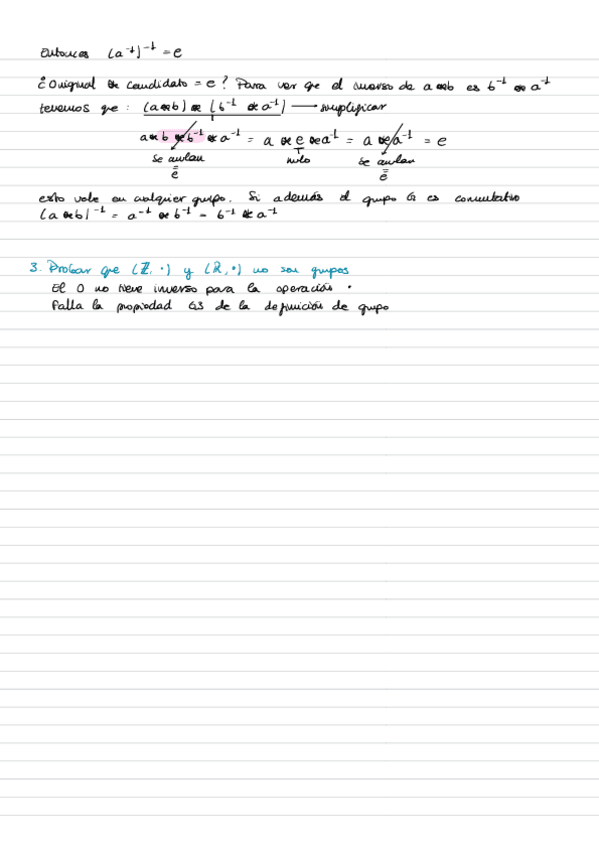 Entonces (a⁻¹)⁻¹ = e
¿Original * candidato = e? Para ver que el inverso de a * b es b⁻¹ * a⁻¹
tenemos que: (a * b) * (b⁻¹ * a⁻¹) → simplificar
a * b * b⁻¹ * a⁻¹ = a * e * a⁻¹ = a * a⁻¹ = e
se anulan nulo se anulan
= =
e e
esto vale en cualquier grupo. Si además el grupo G es conmutativo
(a * b)⁻¹ = a⁻¹ * b⁻¹ = b⁻¹ * a⁻¹
3. Probar que (ℤ, ·) y (ℝ, ·) no son grupos
El 0 no tiene inverso para la operación ·
Falla la propiedad G3 de la definición de grupo